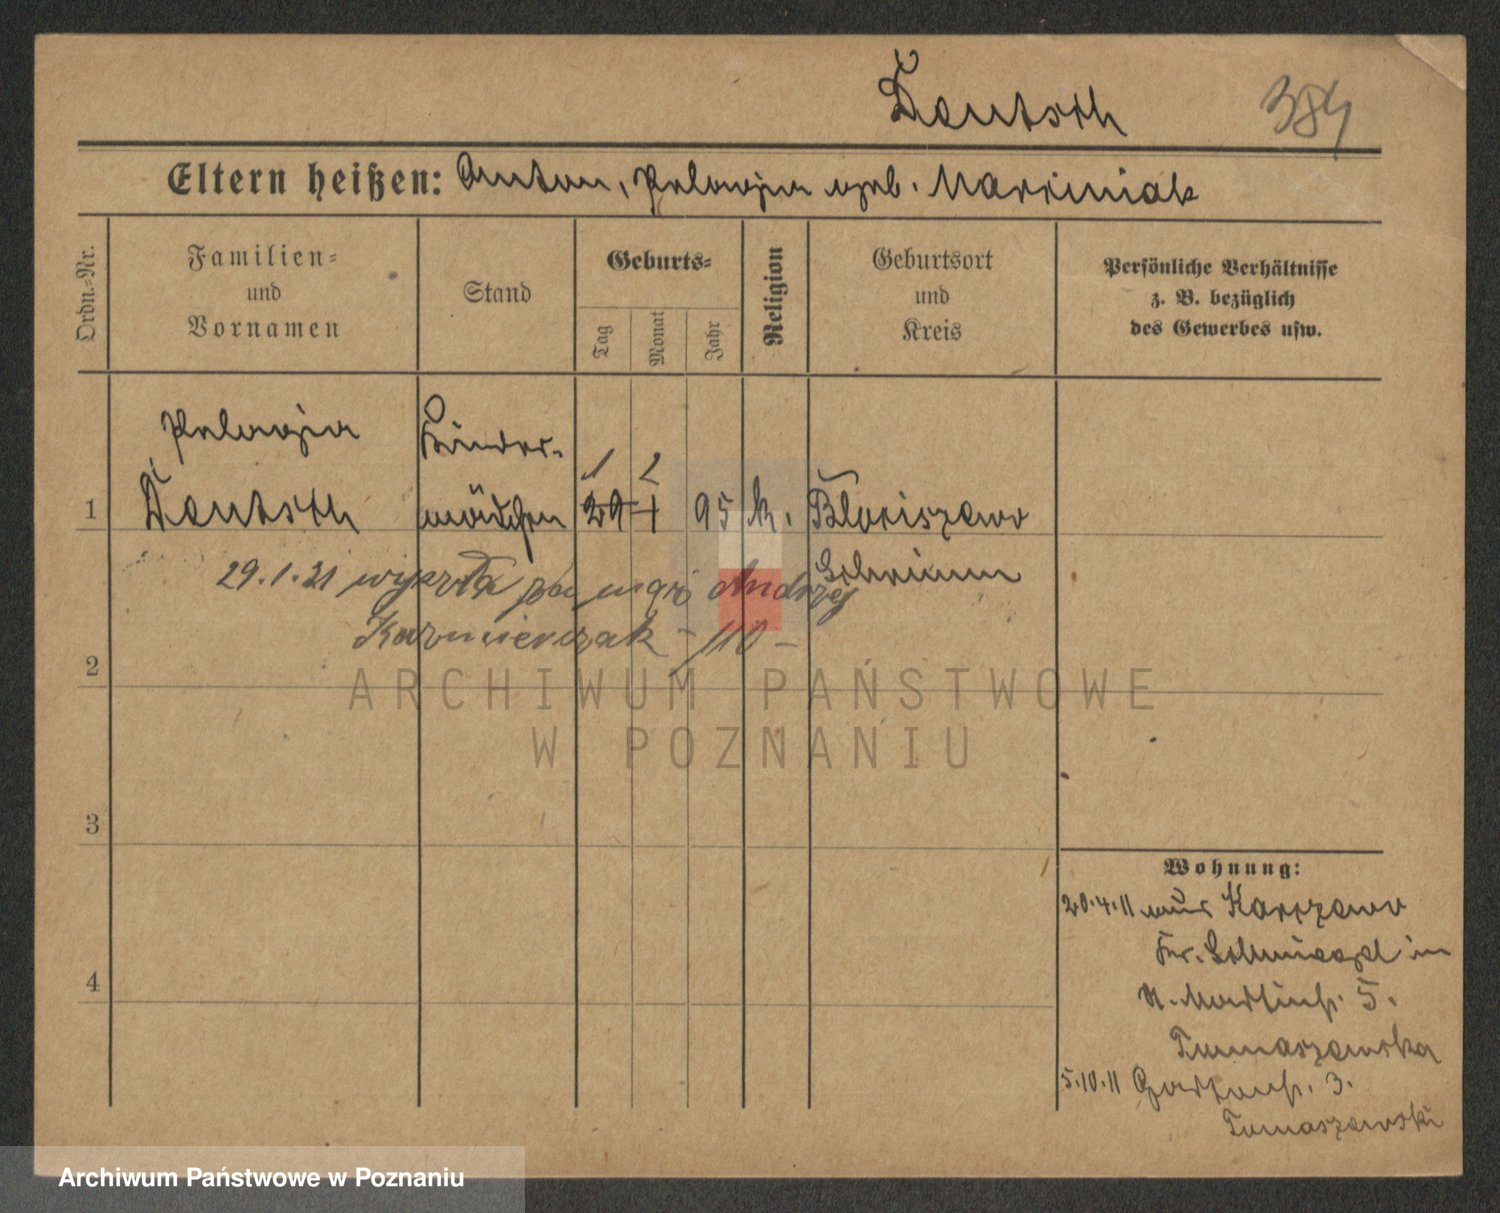 Deutsch 384
Eltern heißen: Anton, Pelagia geb. Marciniak
Ordn.-Nr.
Familien-
und
Vornamen
Stand
Geburts-
Tag
Monat
Jahr
Religion
Geburtsort
und
Kreis
Persönliche Verhältnisse
z. B. bezüglich
des Gewerbes usw.
Pelagia Kinder-
1 2
1 Deutsch mädchen 29 1 95 k. Bloziszewo
Schrimm
29.1.21 wyszła za mąż Andrzej
Kazmierczak
2
ARCHIWUM PAŃSTWOWE
W POZNANIU
3
4
Wohnung:
20.4.11 aus
Kr. Schmiegel in
5.
Tomaszewska
5.10.11 Gartenstr. 3.
Tomaszewski
Archiwum Państwowe w Poznaniu